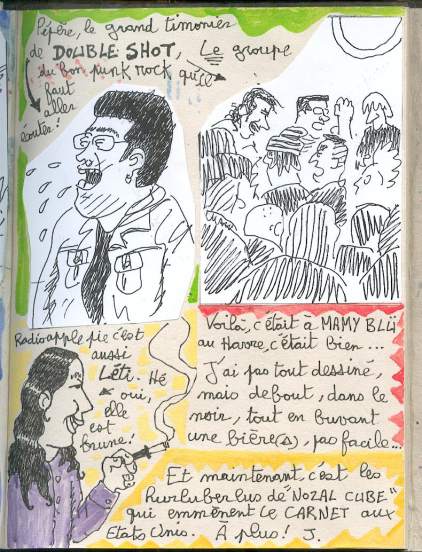 Pépère, le grand timonier
de DOUBLE SHOT, Le groupe
du bon punk rock qu'il
faut
aller
écouter!
Radioapple pie c'est
aussi
Léti. Hé
oui,
elle
est
brune!
Voilà, c'était à MAMY BLÜ
au Havre, c'était bien...
J'ai pas tout dessiné,
mais debout, dans le
noir, tout en buvant
une bière(s), pas facile...
Et maintenant, c'est les
hurluberlus de "NOZAL CUBE"
qui emmènent le CARNET aux
Etats Unis. À plus! J.